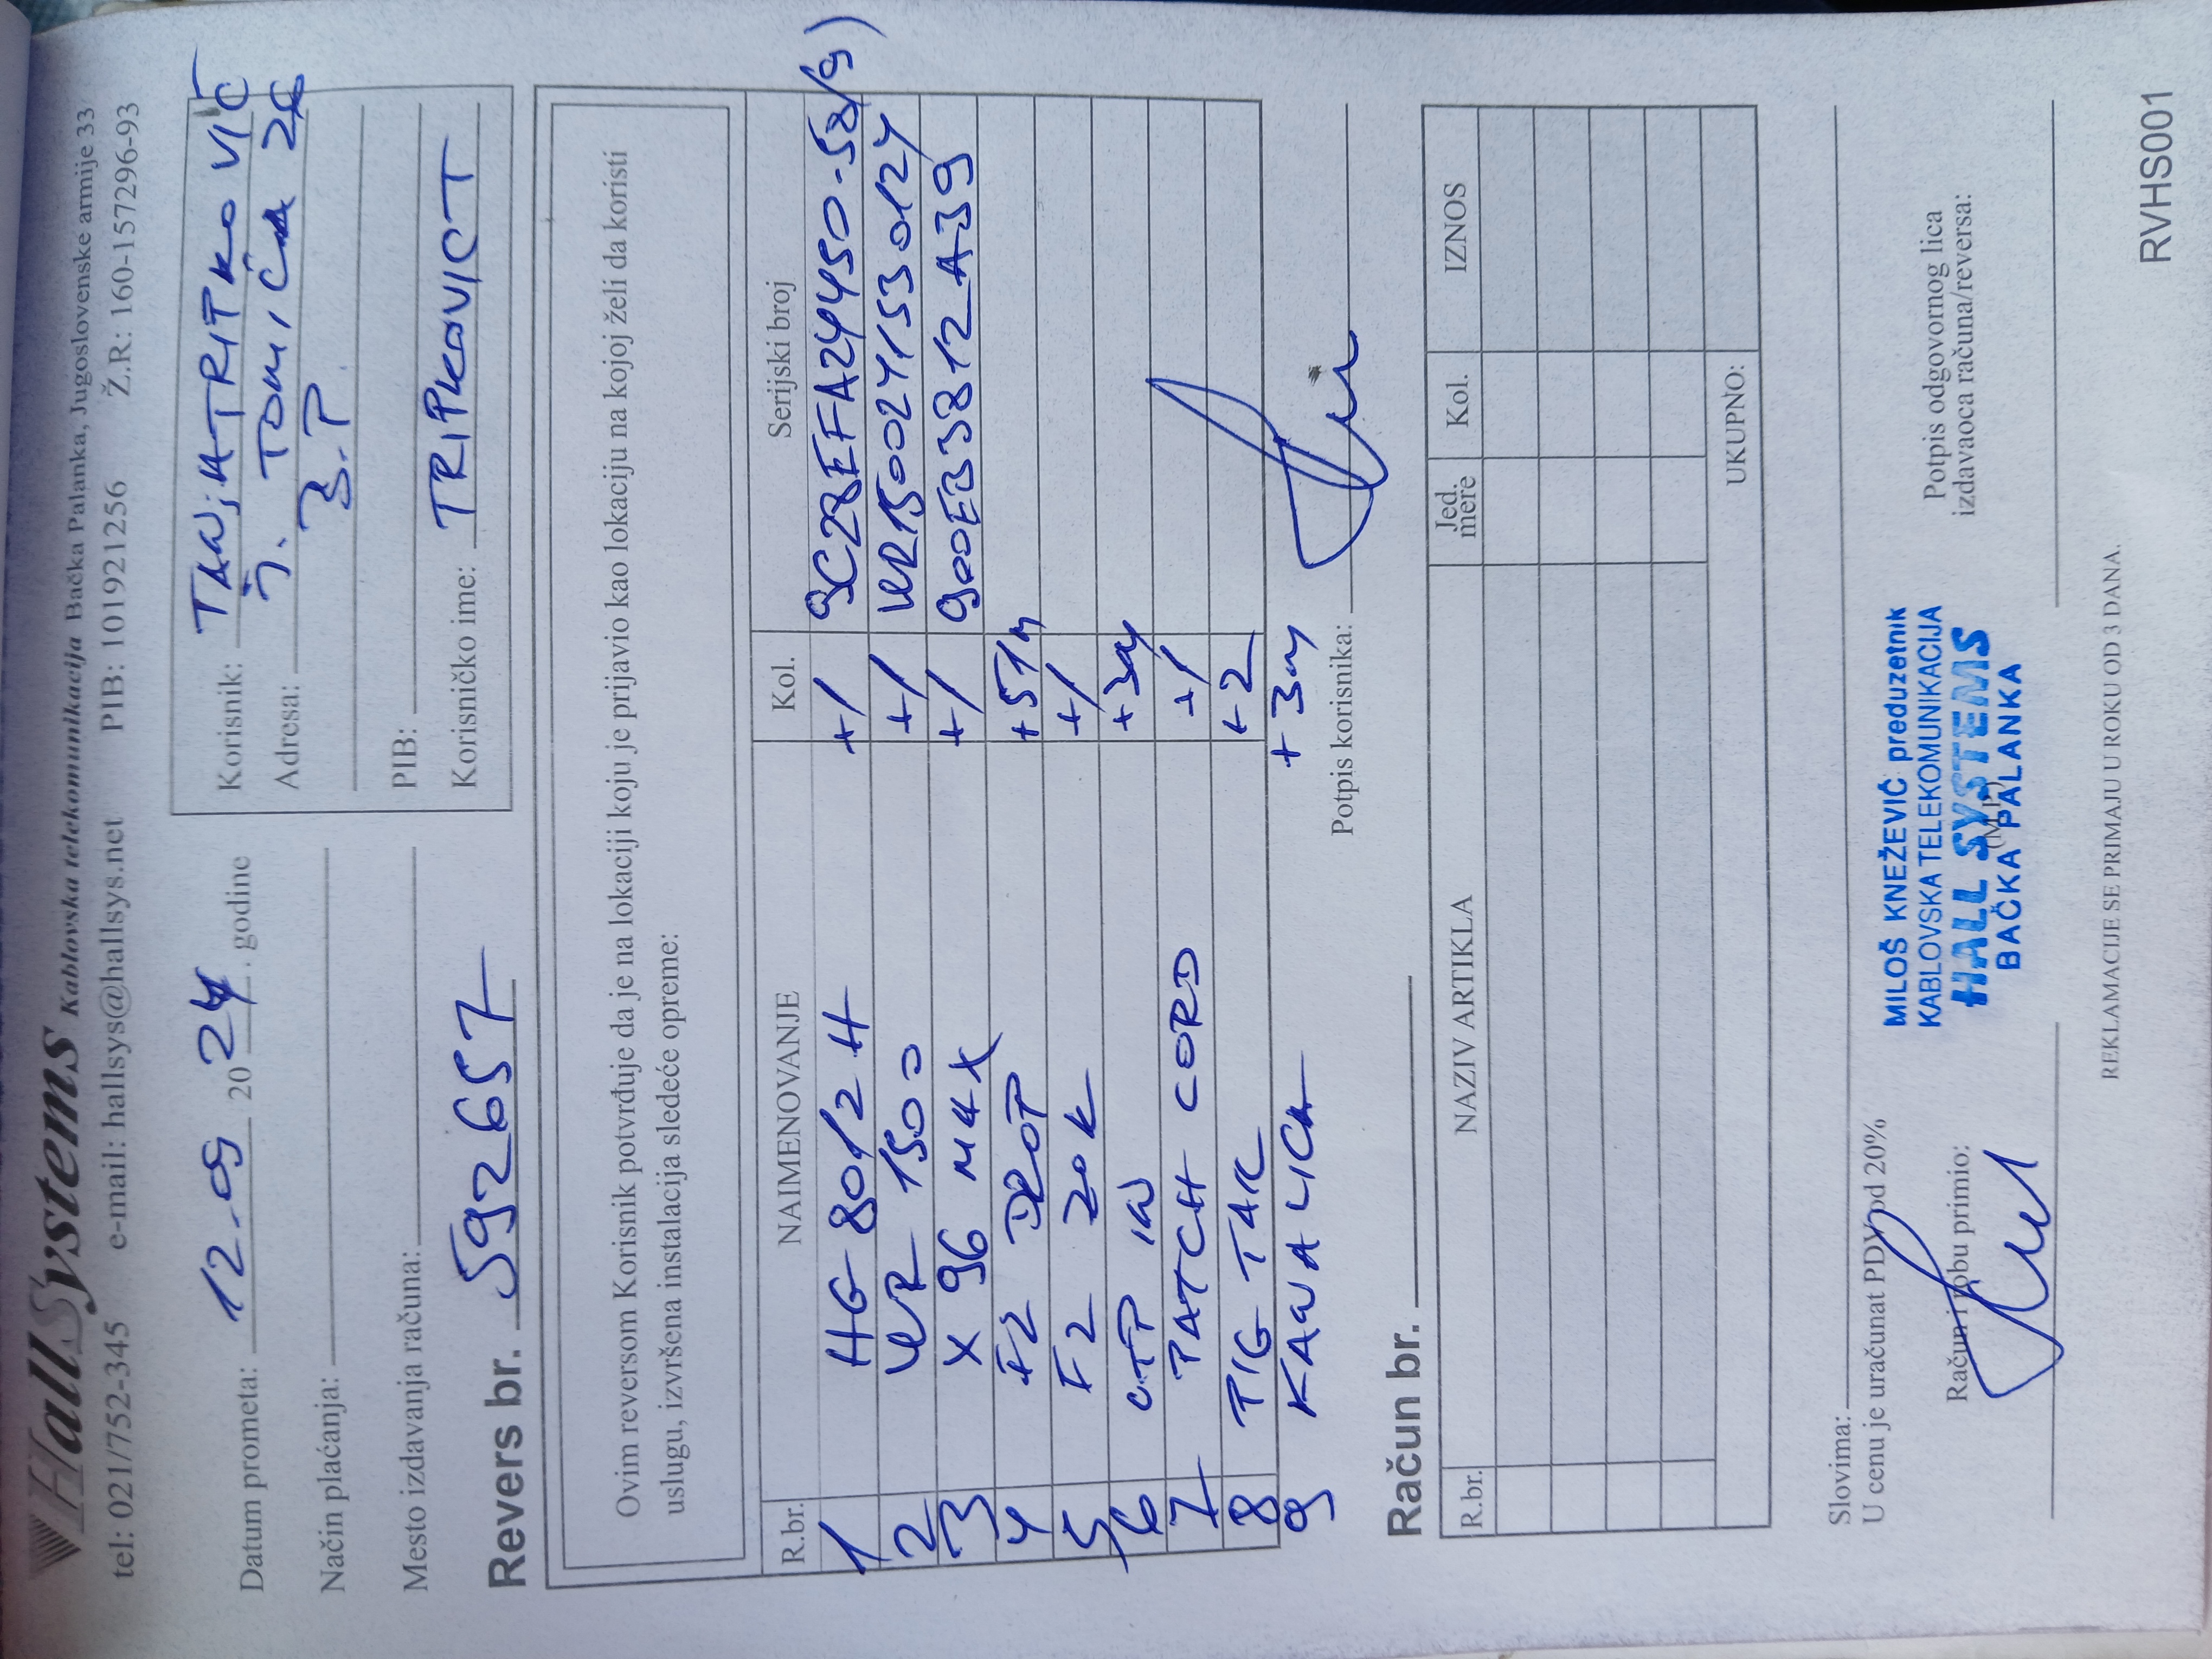 HallSystems Kablovska telekomunikacija Bačka Palanka, Jugoslovenske armije 33
tel: 021/752-345 e-mail: hallsys@hallsys.net PIB: 101921256 Ž.R.: 160-157296-93
Datum prometa: 12.09 2024. godine
Način plaćanja:
Mesto izdavanja računa:
Revers br. 592657
Korisnik: TANJA TRIPKOVIĆ
Adresa: J. TOMIĆA
B.P.
PIB:
Korisničko ime: TRIPKOVICT
Ovim reversom Korisnik potvrđuje da je na lokaciji koju je prijavio kao lokaciju na kojoj želi da koristi
uslugu, izvršena instalacija sledeće opreme:
R.br. NAIMENOVANJE Kol. Serijski broj
1 HG 8012 H +1
2 WR 1500 +1 WR1500241530124
3 X 96 MAX +1 900EB3812A39
4 F2 DROP +51m
5 F2 20K +1
6 UTP IN +3m
7 PATCH CORD +1
8 PIG TAIL +2
9 KANALICA +3m
Potpis korisnika:
Račun br.
R.br. NAZIV ARTIKLA Jed. mere Kol. IZNOS
UKUPNO:
Slovima:
U cenu je uračunat PDV od 20%
Račun i robu primio:
(M.P.)
MILOŠ KNEŽEVIĆ preduzetnik
KABLOVSKA TELEKOMUNIKACIJA
HALL SYSTEMS
BAČKA PALANKA
Potpis odgovornog lica
izdavaoca računa/reversa:
REKLAMACIJE SE PRIMAJU U ROKU OD 3 DANA.
RVHS001